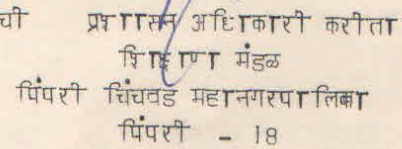 ची प्रशासन अधिकारी करीता
शिक्षण मंडळ
पिंपरी चिंचवड महानगरपालिका
पिंपरी - 18